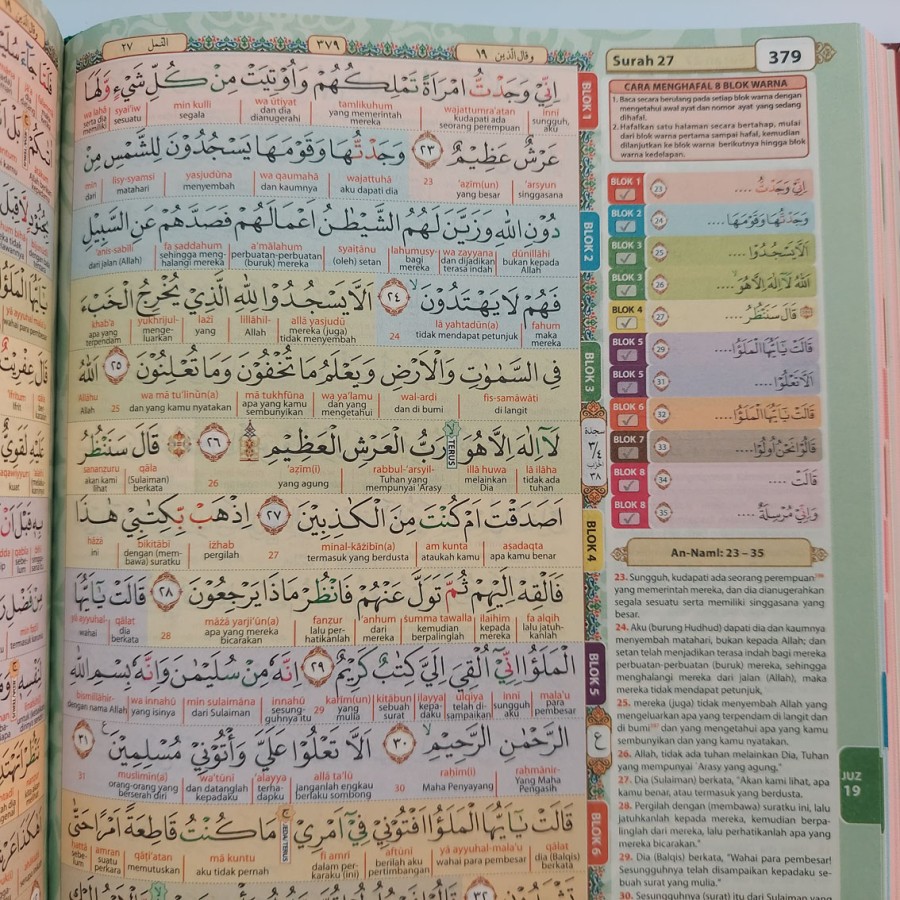 وقال الذين ١٩
٣٧٩
النمل ٢٧
إِنِّي وَجَدْتُ امْرَأَةً تَمْلِكُهُمْ وَأُوتِيَتْ مِنْ كُلِّ شَيْءٍ وَلَهَا
innī sungguh, aku
wajattumra'atan kudapati ada seorang perempuan
tamlikuhum yang memerintah mereka
wa ūtiyat dan dia dianugerahi
min kulli segala
syai'iw sesuatu
wa lahā serta dia memiliki
عَرْشٌ عَظِيمٌ ٢٣ وَجَدْتُهَا وَقَوْمَهَا يَسْجُدُونَ لِلشَّمْسِ مِنْ
'arsyun singgasana
'aẓīm(un) yang besar
23
wajattuhā aku dapati dia
wa qaumahā dan kaumnya
yasjudūna menyembah
lisy-syamsi matahari
min dari
دُونِ اللهِ وَزَيَّنَ لَهُمُ الشَّيْطٰنُ اَعْمَالَهُمْ فَصَدَّهُمْ عَنِ السَّبِيْلِ
dūnillāhi bukan kepada Allah
wa zayyana dan dijadikan terasa indah
lahumusy- bagi mereka
syaiṭānu (oleh) setan
a'mālahum perbuatan-perbuatan (buruk) mereka
fa ṣaddahum sehingga meng-halangi mereka
'anis-sabīli dari jalan (Allah)
فَهُمْ لَا يَهْتَدُوْنَ ٢٤ اَلَّا يَسْجُدُوْا لِلهِ الَّذِيْ يُخْرِجُ الْخَبْءَ
fahum maka mereka
lā yahtadūn(a) tidak mendapat petunjuk
24
allā yasjudū mereka (juga) tidak menyembah
lillāhil- Allah
lażī yang
yukhrijul- menge-luarkan
khab'a apa yang terpendam
فِى السَّمٰوٰتِ وَالْاَرْضِ وَيَعْلَمُ مَا تُخْفُوْنَ وَمَا تُعْلِنُوْنَ ٢٥ اَللهُ
fis-samāwāti di langit
wal-arḍi dan di bumi
wa ya'lamu dan yang mengetahui
mā tukhfūna apa yang kamu sembunyikan
wa mā tu'linūn(a) dan yang kamu nyatakan
25
Allāhu Allah
لَآ اِلٰهَ اِلَّا هُوَ رَبُّ الْعَرْشِ الْعَظِيْمِ ٢٦ قَالَ سَنَنْظُرُ
TERUS
lā ilāha tidak ada tuhan
illā huwa melainkan Dia
rabbul-'arsyil- Tuhan yang mempunyai 'Arasy
'aẓīm(i) yang agung
26
qāla (Sulaiman) berkata
sananẓuru akan kami lihat
اَصَدَقْتَ اَمْ كُنْتَ مِنَ الْكٰذِبِيْنَ ٢٧ اِذْهَبْ بِّكِتٰبِيْ هٰذَا
aṣadaqta apa kamu benar
am kunta ataukah kamu
minal-kāżibīn(a) termasuk yang berdusta
27
iżhab pergilah
bikitābī dengan (mem-bawa) suratku
hāżā ini
فَاَلْقِهْ اِلَيْهِمْ ثُمَّ تَوَلَّ عَنْهُمْ فَانْظُرْ مَاذَا يَرْجِعُوْنَ ٢٨ قَالَتْ يٰٓاَيُّهَا
fa alqih lalu jatuh-kanlah
ilaihim kepada mereka
ṡumma tawalla kemudian berpalinglah
'anhum dari mereka
fanẓur lalu per-hatikanlah
māżā yarji'ūn(a) apa yang mereka bicarakan
28
qālat dia berkata
yā ayyuhal- wahai
الْمَلَؤُا اِنِّيْٓ اُلْقِيَ اِلَيَّ كِتٰبٌ كَرِيْمٌ ٢٩ اِنَّهٗ مِنْ سُلَيْمٰنَ وَاِنَّهٗ بِسْمِ اللهِ
mala'u para pembesar
innī sungguh aku
ulqiya telah di-sampaikan
ilayya kepa-daku
kitābun sebuah surat
karīm(un) yang mulia
29
innahū sesung-guhnya itu
min sulaimāna dari Sulaiman
wa innahū yang isinya
bismillāhir- dengan nama Allah
الرَّحْمٰنِ الرَّحِيْمِ ٣٠ اَلَّا تَعْلُوْا عَلَيَّ وَأْتُوْنِيْ مُسْلِمِيْنَ ٣١
raḥmānir- Yang Maha Pengasih
raḥīm(i) Maha Penyayang
30
allā ta'lū janganlah engkau berlaku sombong
'alayya terha-dapku
wa'tūnī dan datanglah kepadaku
muslimīn(a) orang-orang yang berserah diri
31
قَالَتْ يٰٓاَيُّهَا الْمَلَؤُا اَفْتُوْنِيْ فِيْٓ اَمْرِيْ مَا كُنْتُ قَاطِعَةً اَمْرًا حَتّٰى
BEDA-TERUS
qālat dia (Balqis) berkata
yā ayyuhal-mala'u wahai para pembesar
aftūnī berilah aku pertimbangan
fī amrī dalam per-karaku (ini)
mā kuntu aku tidak pernah
qāṭi'atan memutuskan
amran suatu perkara
ḥattā sebe-lum
BLOK 1
BLOK 2
BLOK 3
BLOK 4
BLOK 5
BLOK 6
Surah 27
379
CARA MENGHAFAL 8 BLOK WARNA
1. Baca secara berulang pada setiap blok warna dengan
mengetahui awal ayat dan nomor ayat yang sedang
dihafal.
2. Hafalkan satu halaman secara bertahap, mulai
dari blok warna pertama sampai hafal, kemudian
dilanjutkan ke blok warna berikutnya hingga blok
warna kedelapan.
BLOK 1 23 اِنِّيْ وَجَدْتُّ ....
BLOK 2 24 وَجَدْتُّهَا وَقَوْمَهَا ....
BLOK 3 25 اَلَّا يَسْجُدُوْا ....
BLOK 3 26 اَللهُ لَآ اِلٰهَ اِلَّا هُوَ ....
BLOK 4 27 قَالَ سَنَنْظُرُ ....
BLOK 5 29 قَالَتْ يٰٓاَيُّهَا الْمَلَؤُا ....
BLOK 5 31 اَلَّا تَعْلُوْا ....
BLOK 6 32 قَالَتْ يٰٓاَيُّهَا الْمَلَؤُا ....
BLOK 7 33 قَالُوْا نَحْنُ اُولُوْا ....
BLOK 8 34 قَالَتْ ....
BLOK 8 35 وَاِنِّيْ مُرْسِلَةٌ ....
An-Naml: 23 – 35
23. Sungguh, kudapati ada seorang perempuan
yang memerintah mereka, dan dia dianugerahi
segala sesuatu serta memiliki singgasana yang
besar.
24. Aku (burung Hudhud) dapati dia dan kaumnya
menyembah matahari, bukan kepada Allah; dan
setan telah menjadikan terasa indah bagi mereka
perbuatan-perbuatan (buruk) mereka, sehingga
menghalangi mereka dari jalan (Allah), maka
mereka tidak mendapat petunjuk,
25. mereka (juga) tidak menyembah Allah yang
mengeluarkan apa yang terpendam di langit dan
di bumi dan yang mengetahui apa yang kamu
sembunyikan dan yang kamu nyatakan.
26. Allah, tidak ada tuhan melainkan Dia, Tuhan
yang mempunyai 'Arasy yang agung."
27. Dia (Sulaiman) berkata, "Akan kami lihat, apa
kamu benar, atau termasuk yang berdusta.
28. Pergilah dengan (membawa) suratku ini, lalu
jatuhkanlah kepada mereka, kemudian berpa-
linglah dari mereka, lalu perhatikanlah apa yang
mereka bicarakan."
29. Dia (Balqis) berkata, "Wahai para pembesar!
Sesungguhnya telah disampaikan kepadaku se-
buah surat yang mulia."
30. Sesungguhnya (surat) itu dari Sulaiman yang
JUZ
19